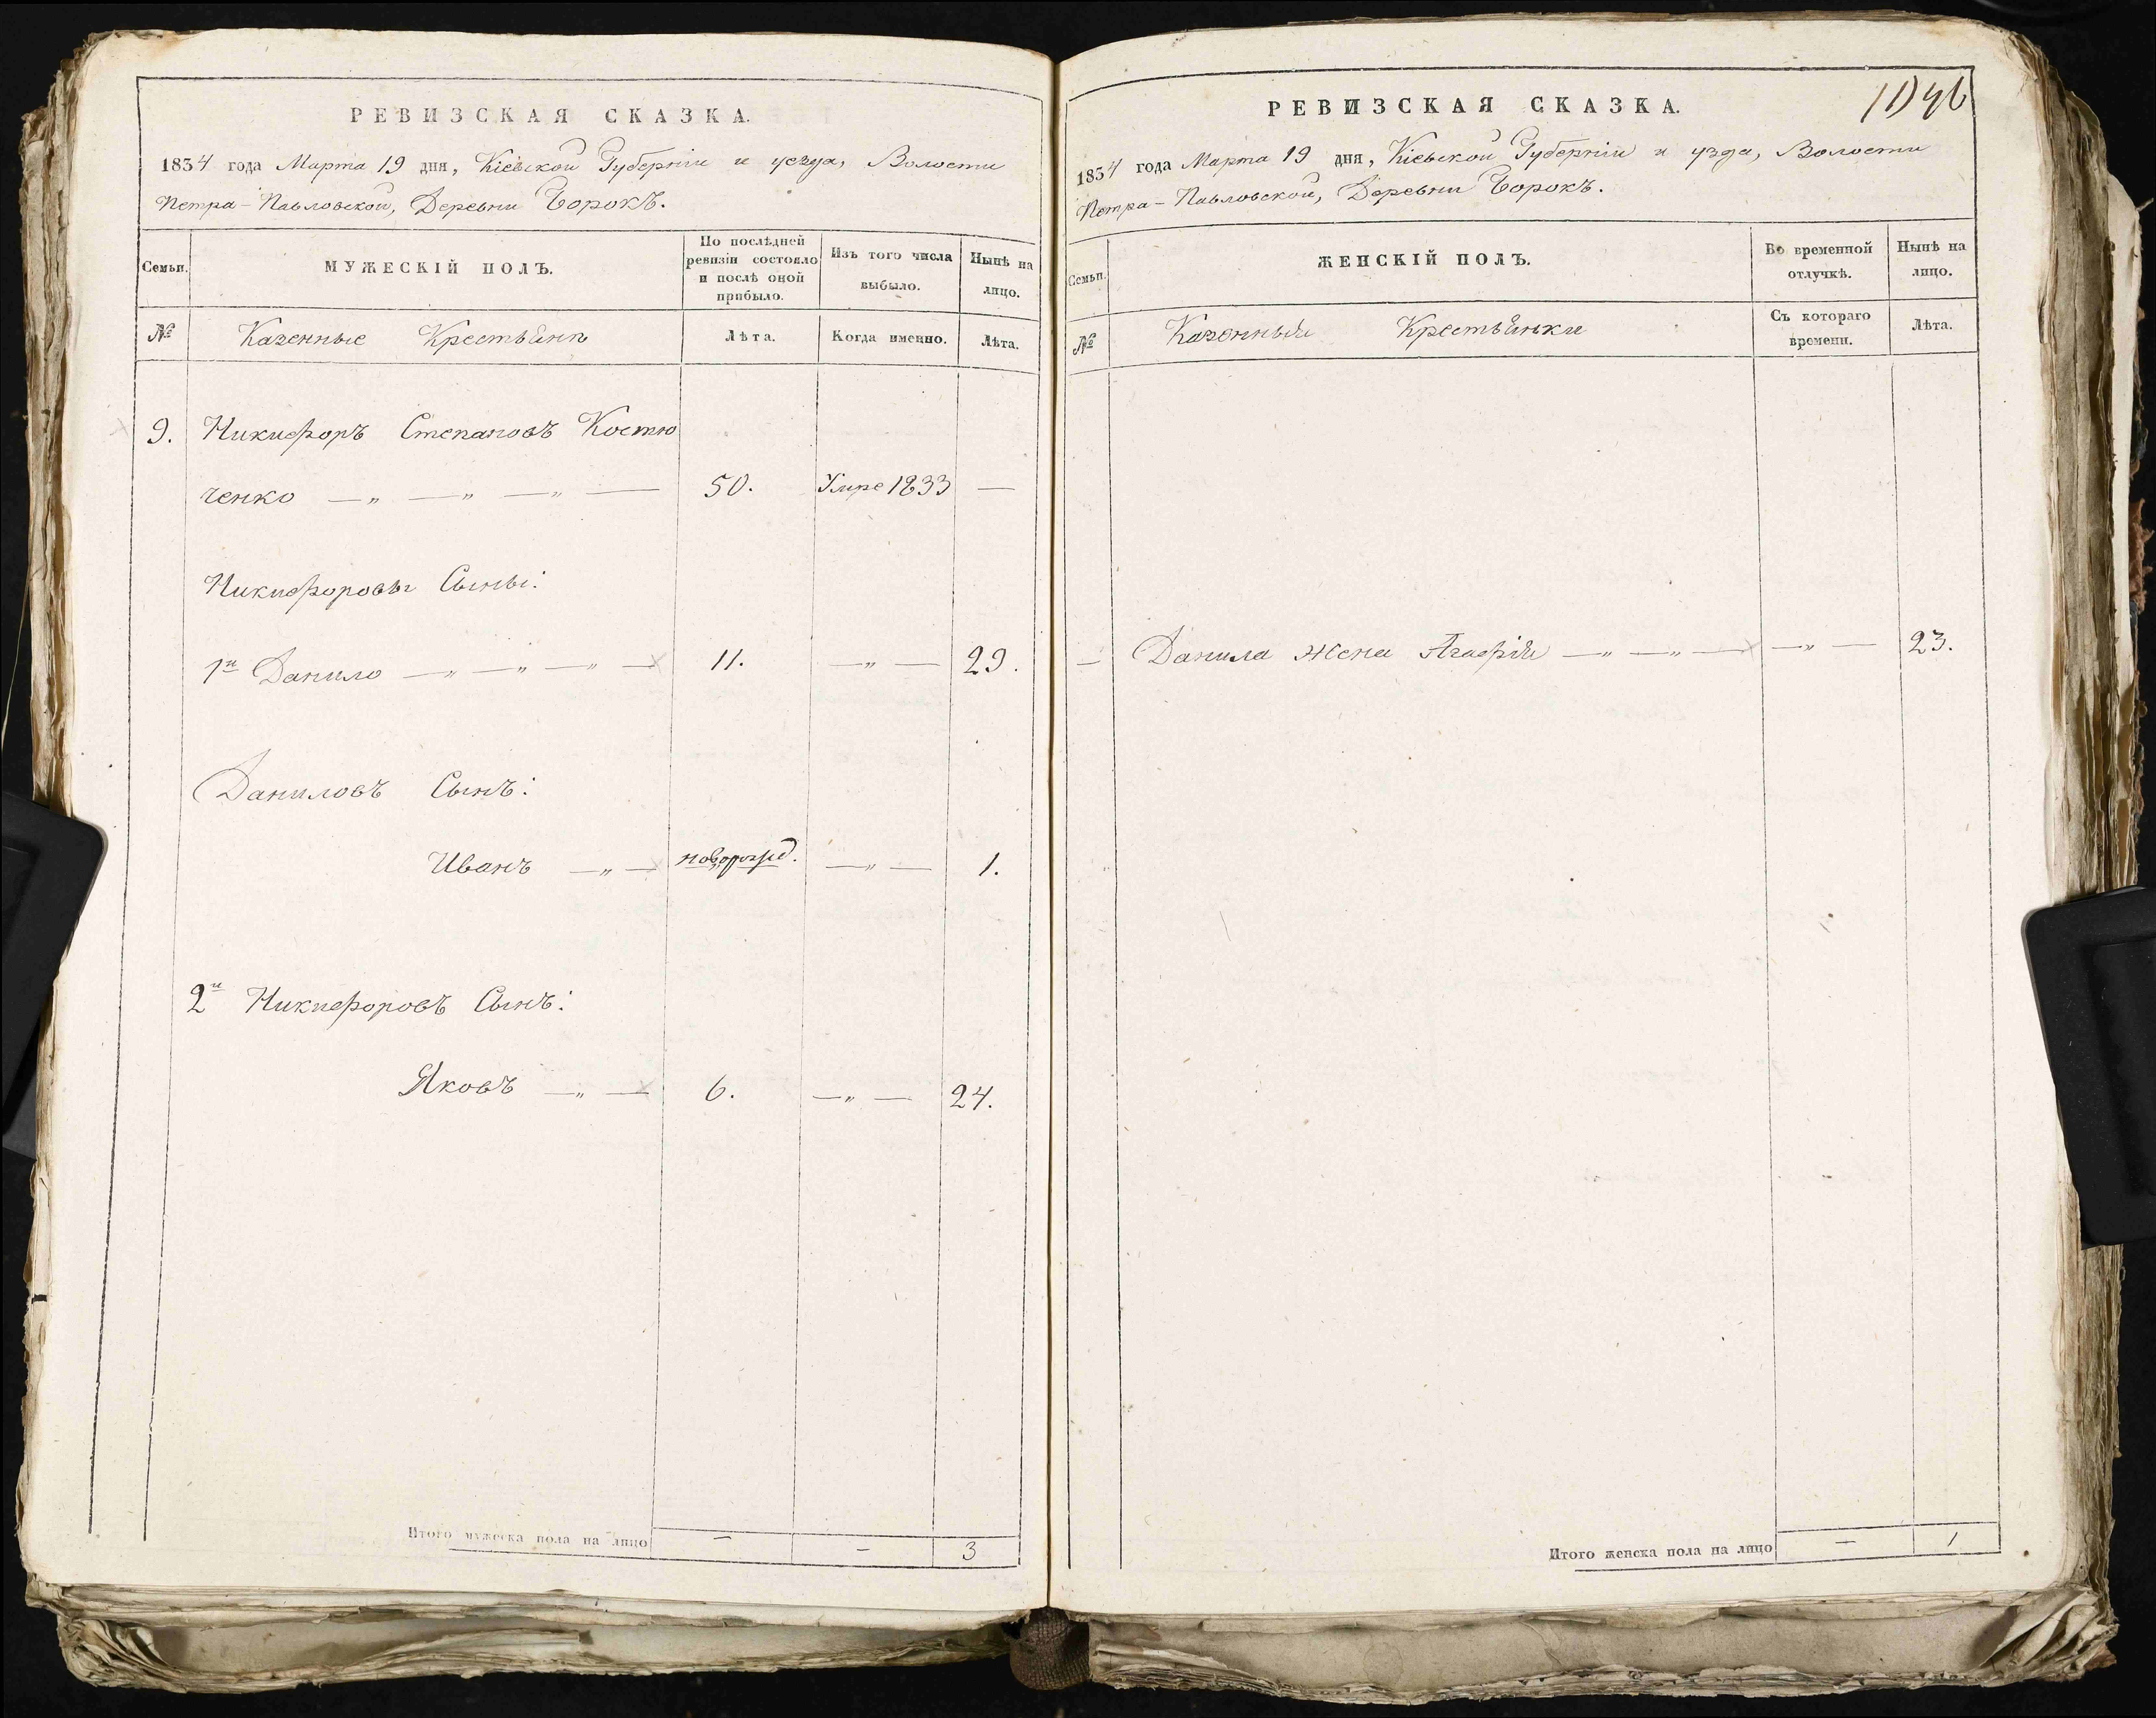 РЕВИЗСКАЯ СКАЗКА.
1834 года Марта 19 дня, Кіевской Губерніи и уезда, Волости
Петра-Павловской, Деревни Борокъ.
Семьи.
МУЖЕСКІЙ ПОЛЪ.
По послѣдней
ревизіи состояло
и послѣ оной
прибыло.
Изъ того числа
выбыло.
Нынѣ на
лицо.
№
Казенные Крестьяни
Лѣта.
Когда именно.
Лѣта.
9. Никифоръ Степановъ Костю
ченко — „ — „ — „ — 50. Умре 1833 —
Никифоровы Сыны:
1й Данило — „ — „ — „ — 11. — „ — 29.
Даниловъ Сынъ:
Иванъ — „ — новорожд. — „ — 1.
2й Никифоровъ Сынъ:
Яковъ — „ — 6. — „ — 24.
Итого мужеска пола на лицо — — 3
РЕВИЗСКАЯ СКАЗКА.
1834 года Марта 19 дня, Кіевской Губерніи и узда, Волости
Петра-Павловской, Деревни Борокъ.
Семьи.
ЖЕНСКІЙ ПОЛЪ.
Во временной
отлучкѣ.
Нынѣ на
лицо.
№
Казенныя Крестьянки
Съ котораго
времени.
Лѣта.
— Данила жена Агафія — „ — „ — — „ — 23.
Итого женска пола на лицо — 1